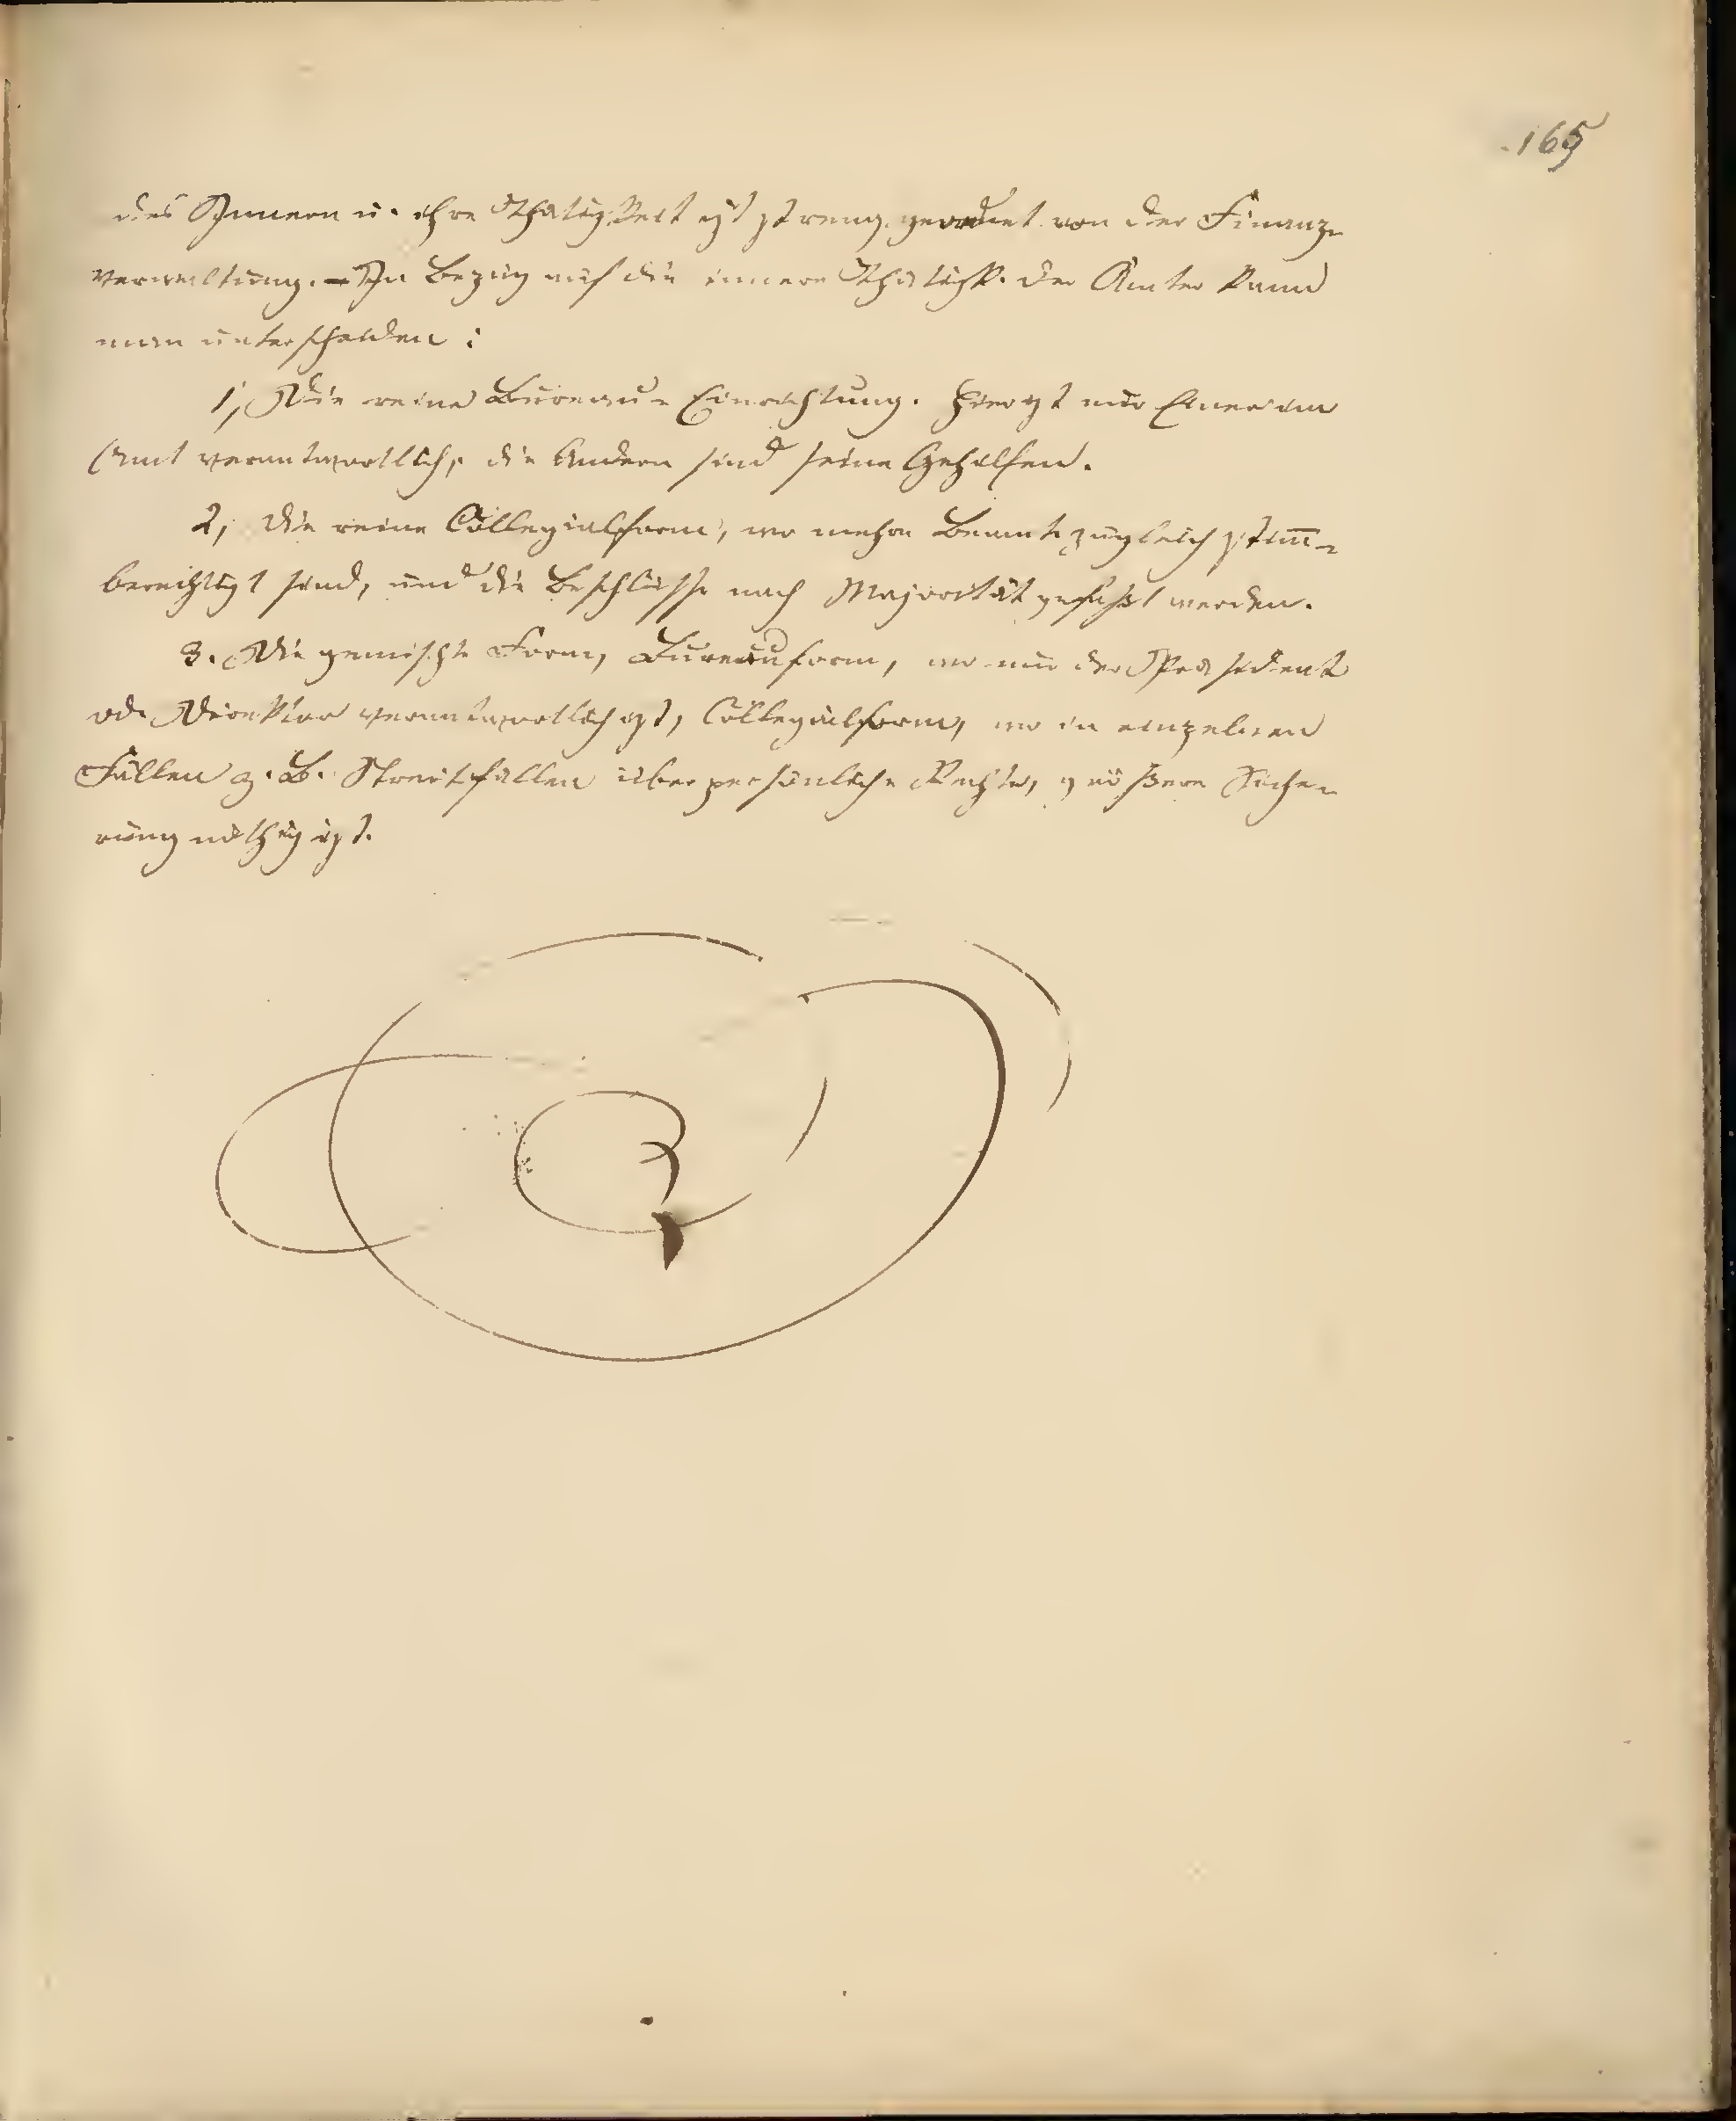 165
des Innern u. ihre Thätigkeit ist streng geordnet von der Finanz-
verwaltung. – In Bezug auf die innere Thätigk. der Ämter kann
man unterscheiden:
1, Die reine Bureau-Einrichtung. Hier ist nur Einer im
Amt verantwortlich, die Andern sind seine Gehilfen.
2, die reine Collegialform, wo mehre Beamte zugleich stim̅-
berechtigt sind, und die Beschlüsse nach Majorität gefaßt werden.
3. Die gemischte Form, Bureauform, wo nur der Präsident
od. Direktor verantwortlich ist, Collegialform, wo in einzelnen
Fällen z. B. Streitfällen über persönliche Rechte, größere Siche-
rung nöthig ist.